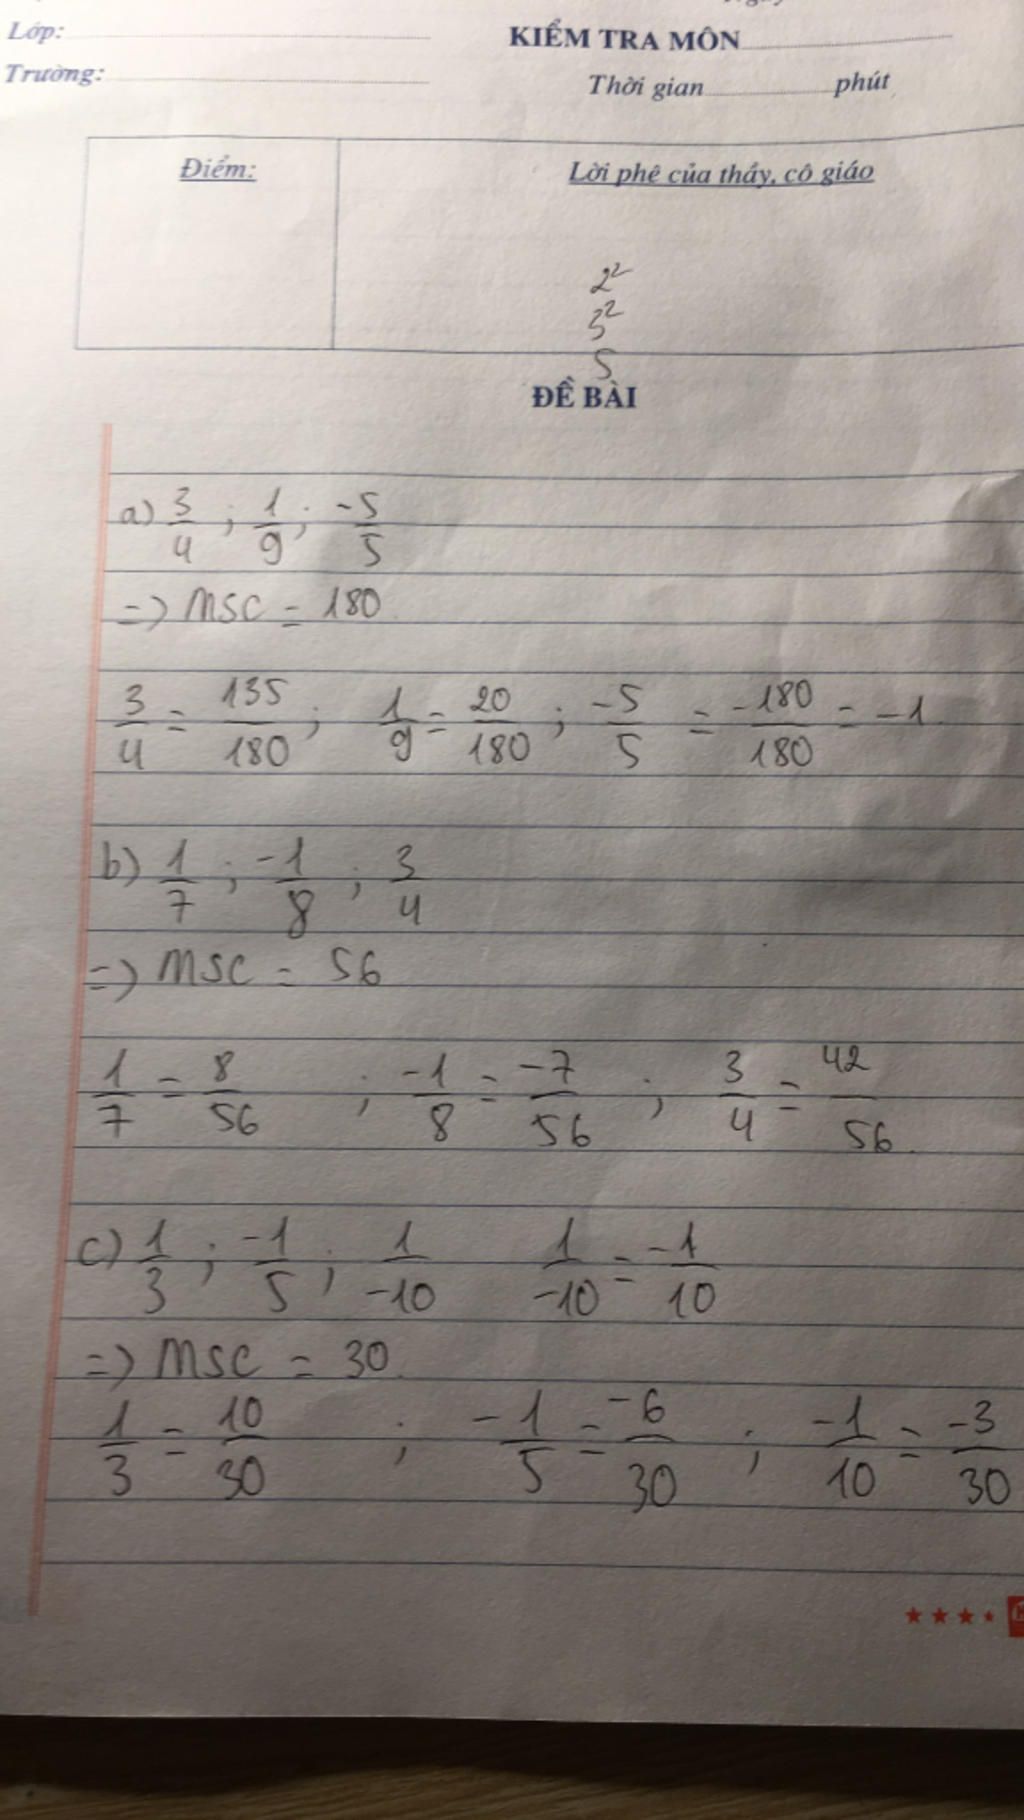 Lớp:
KIỂM TRA MÔN
Trường:
Thời gian phút
Điểm:
Lời phê của thầy, cô giáo
2²
3²
5
ĐỀ BÀI
a) 3/4 ; 1/9 ; -5/5
=> MSC = 180
3/4 = 135/180 ; 1/9 = 20/180 ; -5/5 = -180/180 = -1
b) 1/7 ; -1/8 ; 3/4
=> MSC = 56
1/7 = 8/56 ; -1/8 = -7/56 ; 3/4 = 42/56.
c) 1/3 ; -1/5 ; 1/-10 1/-10 = -1/10
=> MSC = 30.
1/3 = 10/30 ; -1/5 = -6/30 ; -1/10 = -3/30